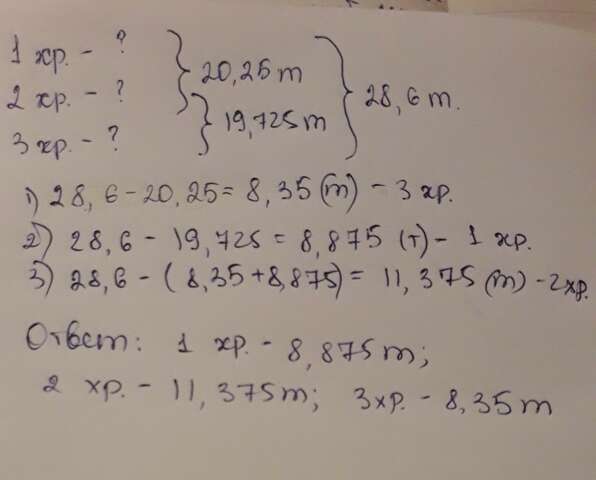 1 хр. - ? } 20,25 т } 28,6 т.
2 хр. - ? } 19,725 т
3 хр. - ?
1) 28,6 - 20,25 = 8,35 (т) - 3 хр.
2) 28,6 - 19,725 = 8,875 (т) - 1 хр.
3) 28,6 - (8,35 + 8,875) = 11,375 (т) - 2 хр.
Ответ: 1 хр. - 8,875 т;
2 хр. - 11,375 т; 3 хр. - 8,35 т